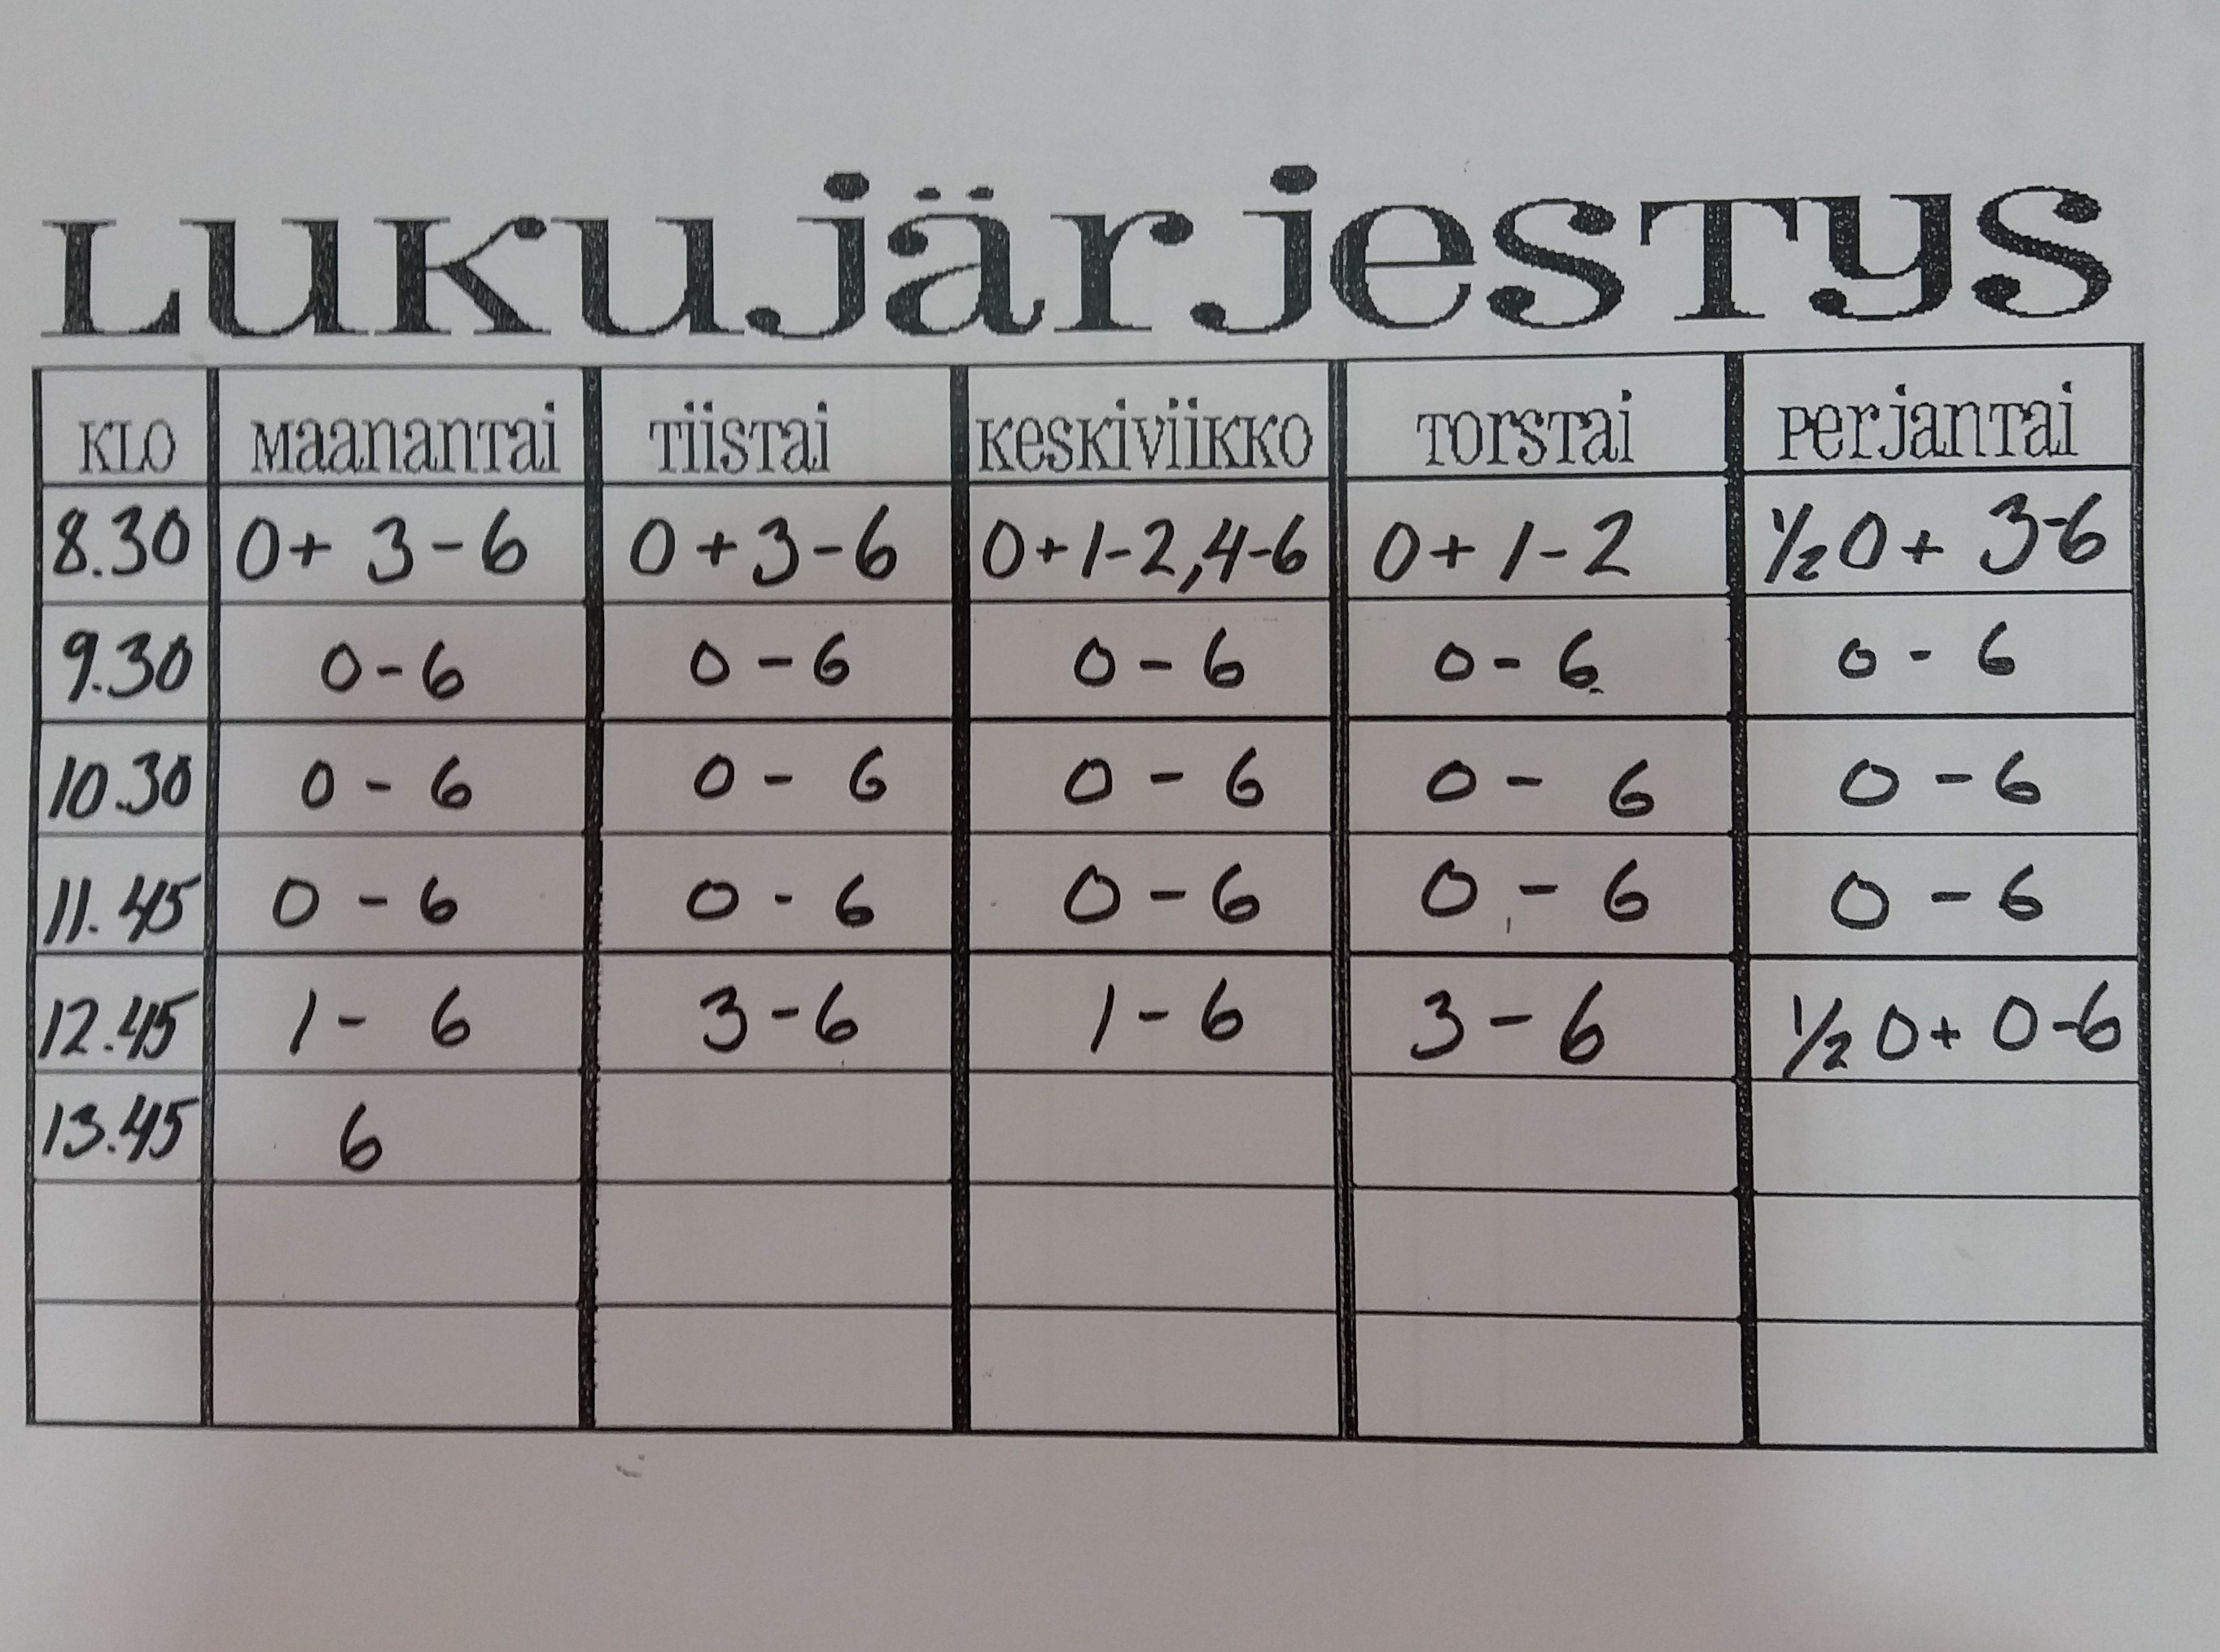 Lukujärjestys
KLO Maanantai Tiistai Keskiviikko Torstai Perjantai
8.30 0+ 3-6 0+3-6 0+1-2,4-6 0+1-2 1/2 0+ 3-6
9.30 0-6 0-6 0-6 0-6 0-6
10.30 0-6 0-6 0-6 0-6 0-6
11.45 0-6 0-6 0-6 0-6 0-6
12.45 1-6 3-6 1-6 3-6 1/2 0+ 0-6
13.45 6